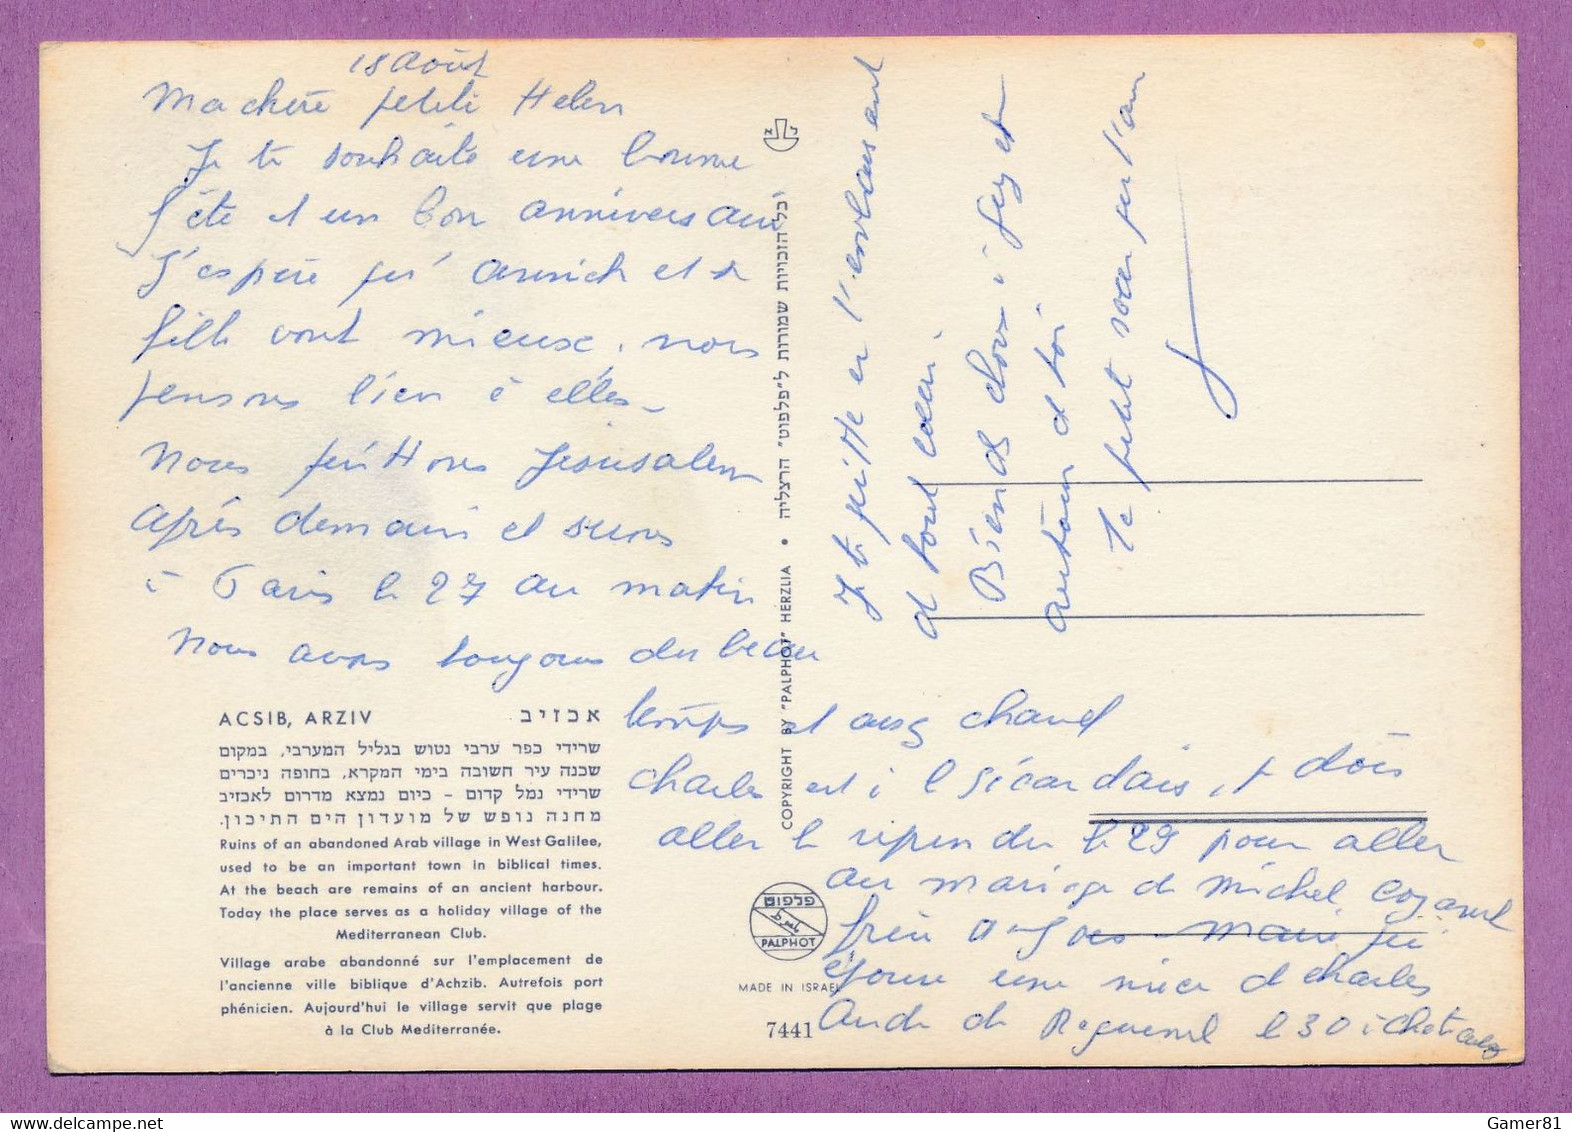 18 Août
Ma chère petite Helen
Je te souhaite une bonne
fête et un bon anniversaire
J'espère qu' et sa
fille vont mieux. nous
pensons bien à elles_
Nous quittons Jérusalem
après demain et serons
à Paris le 27 au matin
Nous avons toujours du beau
temps et assez chaud
Charles est à et dois
aller le reprendre le 29 pour aller
au mariage de Michel
frère Marie qui
épouse une nièce de Charles
Aude de le 30 à
Je te quitte en t'embrassant
de tout coeur.
Bien des choses à et
autour de toi
Ta petite soeur qui t'aime
ACSIB, ARZIV אכזיב
שרידי כפר ערבי נטוש בגליל המערבי, במקום
שכנה עיר חשובה בימי המקרא, בחופה ניכרים
שרידי נמל קדום – כיום נמצא מדרום לאכזיב
מחנה נופש של מועדון הים התיכון.
Ruins of an abandoned Arab village in West Galilee,
used to be an important town in biblical times.
At the beach are remains of an ancient harbour.
Today the place serves as a holiday village of the
Mediterranean Club.
Village arabe abandonné sur l'emplacement de
l'ancienne ville biblique d'Achzib. Autrefois port
phénicien. Aujourd'hui le village servit que plage
à la Club Mediterranée.
COPYRIGHT BY "PALPHOT" HERZLIA • כל הזכויות שמורות ל"פלפוט" הרצליה
פלפוט
PALPHOT
MADE IN ISRAEL
7441
Gamer81